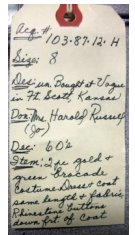 Acq. #
103-87-12. H
Size: 8
Des: un. Bought at Vogue
in Ft. Scott, Kansas
Don: Mrs. Harold Russell
(Jo)
Dec: 60's
Item: 2 pc gold &
green Brocade
Costume Dress & coat
same length & fabric
Rhinestone buttons
down frt. of coat